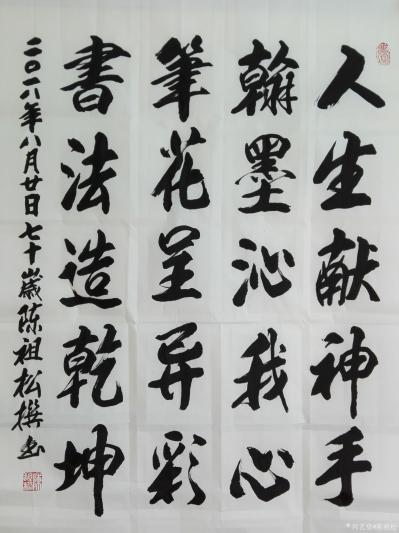 人生献神手
翰墨沁我心
筆花呈异彩
書法造乾坤
二〇一八年八月廿日七十歲陈祖松撰书